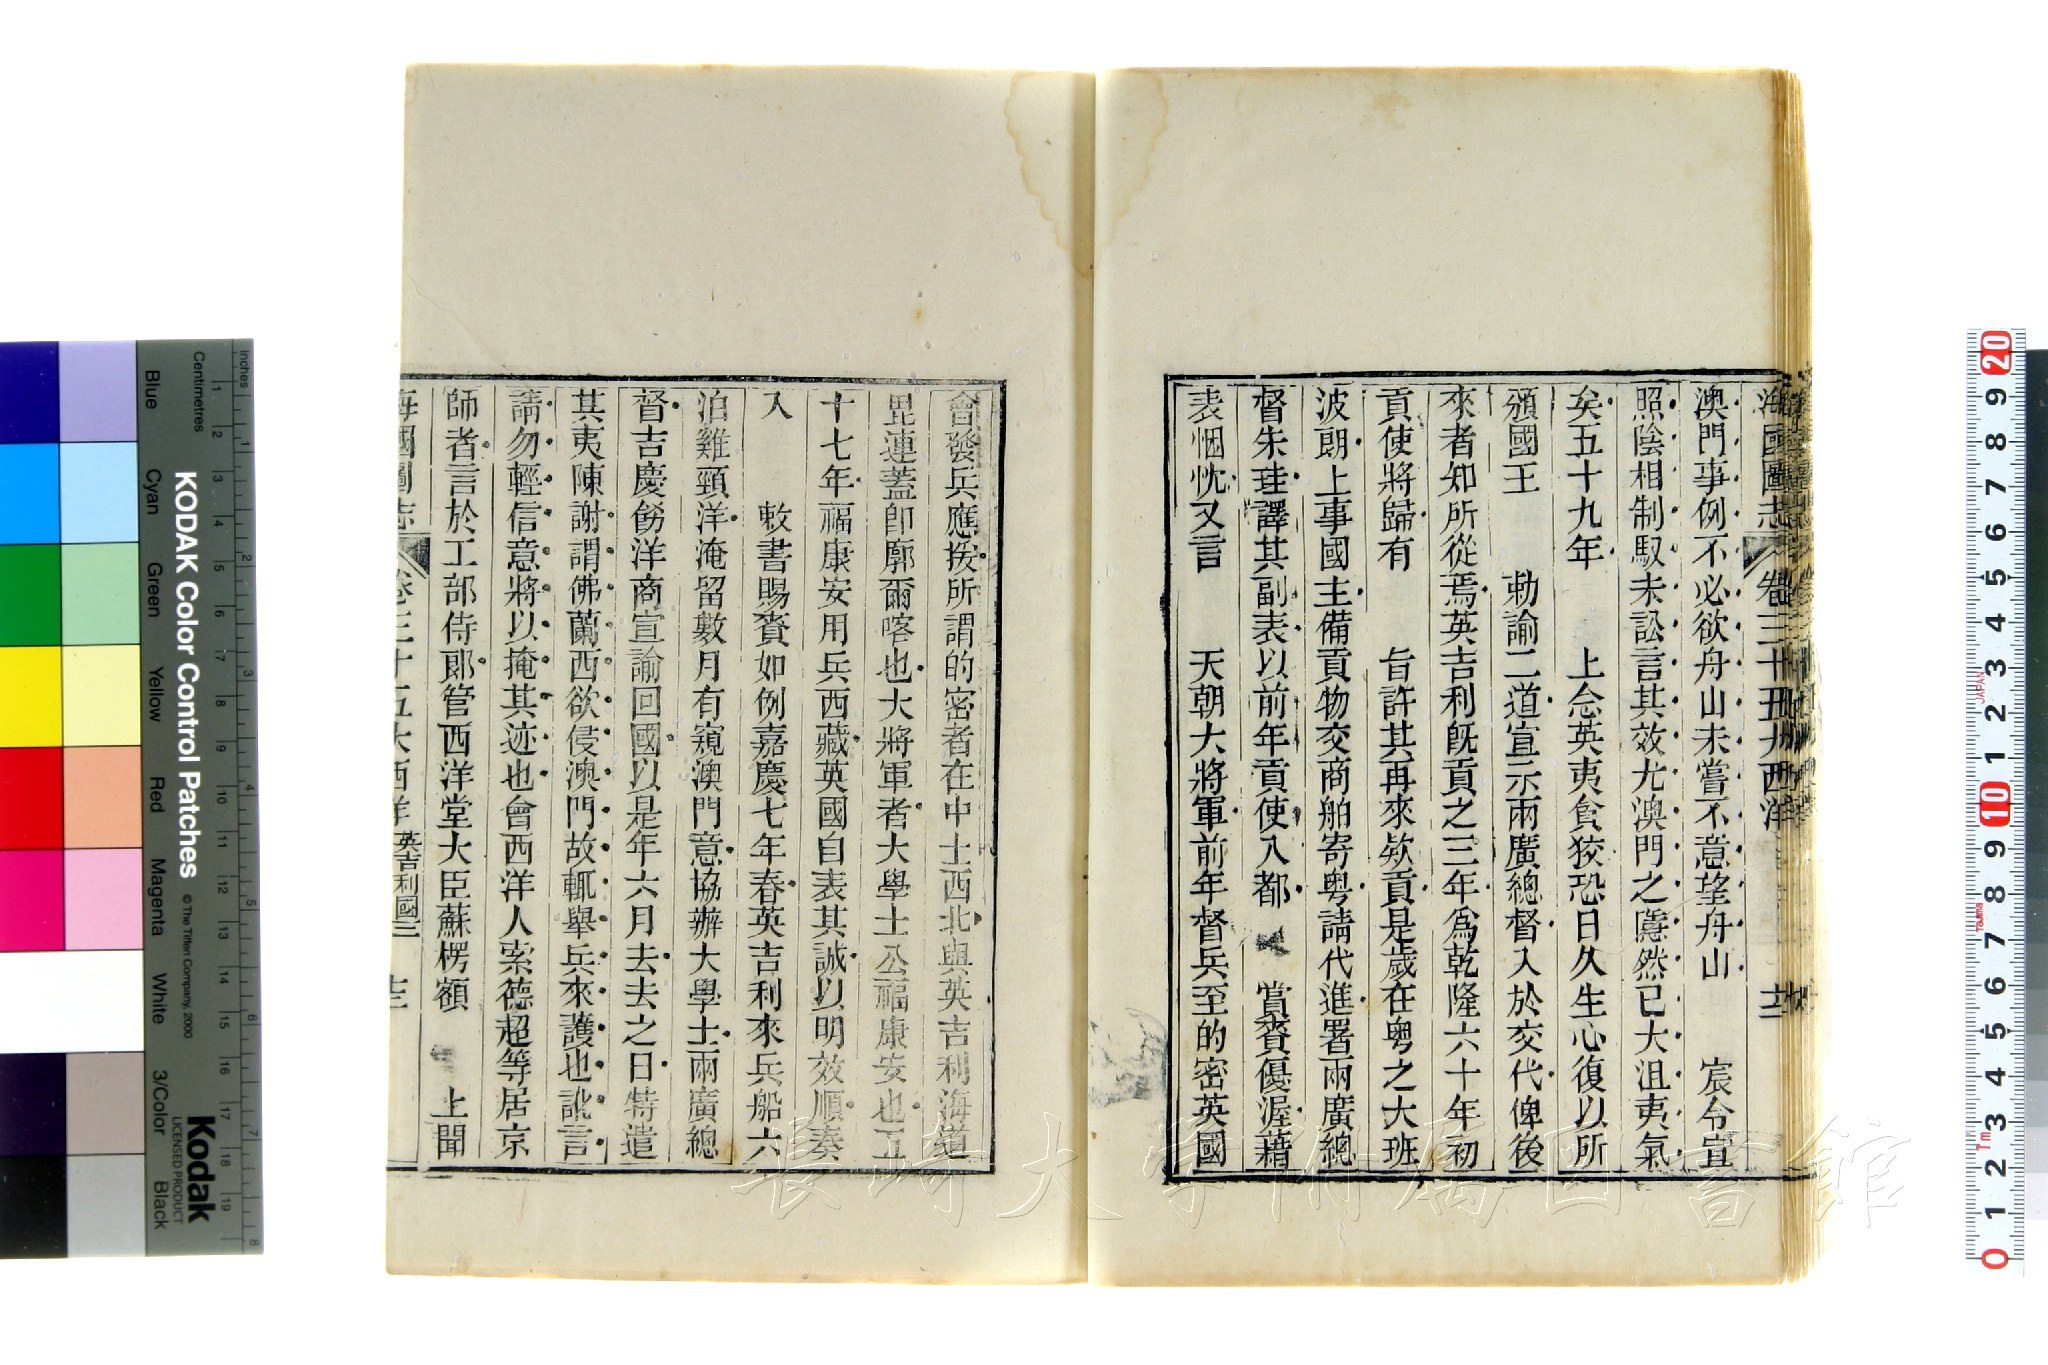 海國圖志 卷三十五大西洋 十二
澳門事例不必欲舟山未嘗不意望舟山 宸令宜
照陰相制馭未訟言其效尤澳門之隱然已大沮夷氣
矣五十九年 上念英夷貪狡恐日久生心復以所
頒國王 勅諭二道宣示兩廣總督入於交代俾後
來者知所從焉英吉利旣貢之三年爲乾隆六十年初
貢使將歸有 旨許其再來欵貢是歲在粤之大班
波朗上事國主備貢物交商舶寄粤請代進署兩廣總
督朱珪譯其副表以前年貢使入都 賞賚優渥藉
表悃忱又言 天朝大將軍前年督兵至的密英國
會發兵應援所謂的密者在中土西北與英吉利海道
毘連蓋卽廓爾喀也大將軍者大學士公福康安也五
十七年福康安用兵西藏英國自表其誠以明效順奏
入 敕書賜賚如例嘉慶七年春英吉利來兵船六
泊雞頸洋淹留數月有窺澳門意協辦大學士兩廣總
督吉慶飭洋商宣諭回國以是年六月去去之日特遣
其夷陳謝謂佛蘭西欲侵澳門故輒舉兵來護也訛言
請勿輕信意將以掩其迹也會西洋人索德超等居京
師者言於工部侍郞管西洋堂大臣蘇楞額 上聞
海國圖志 卷三十五大西洋 英吉利國三 十三
KODAK Color Control Patches
© The Tiffen Company, 2000
Kodak
LICENSED PRODUCT
Inches
Centimetres
Blue Cyan Green Yellow Red Magenta White 3/Color Black
長崎大学附属図書館
JAPAN